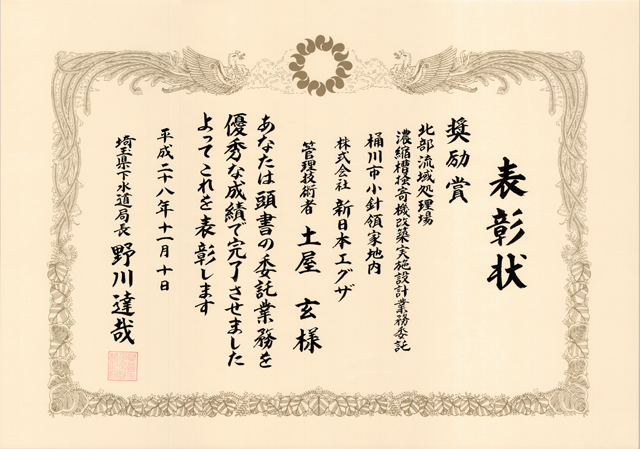 表彰状
奨励賞
北部流域処理場
濃縮槽掻寄機改築実施設計業務委託
桶川市小針領家地内
株式会社 新日本エグザ
管理技術者 土屋 玄様
あなたは頭書の委託業務を
優秀な成績で完了させました
よってこれを表彰します
平成二十八年十一月十日
埼玉県下水道局長 野川達哉